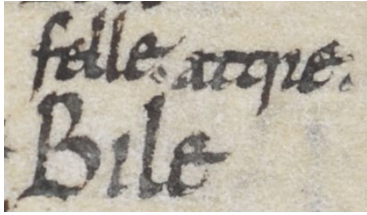 felle. atque.
Bile